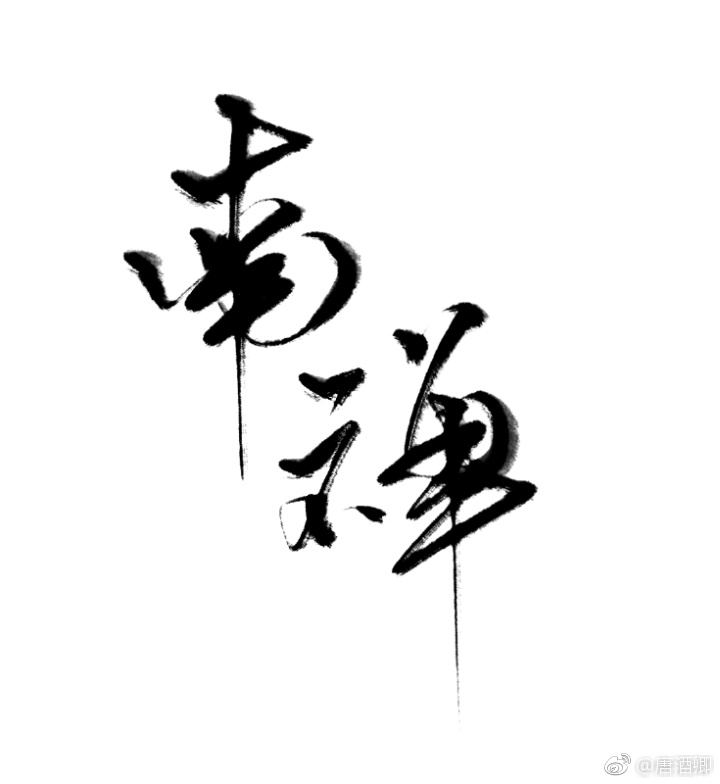 南禅
@唐酒卿